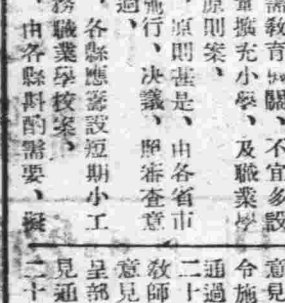 需教育機關、不宜多設
量擴充小學、及職業學
原則案、
、原則甚是、由各省市
施行、决議、照審查意
過、
、各縣應籌設短期小工
務職業學校案、
、由各縣斟酌需要、擬
意見
令施
通過
二十
敎師
意見
呈部
見通
二十